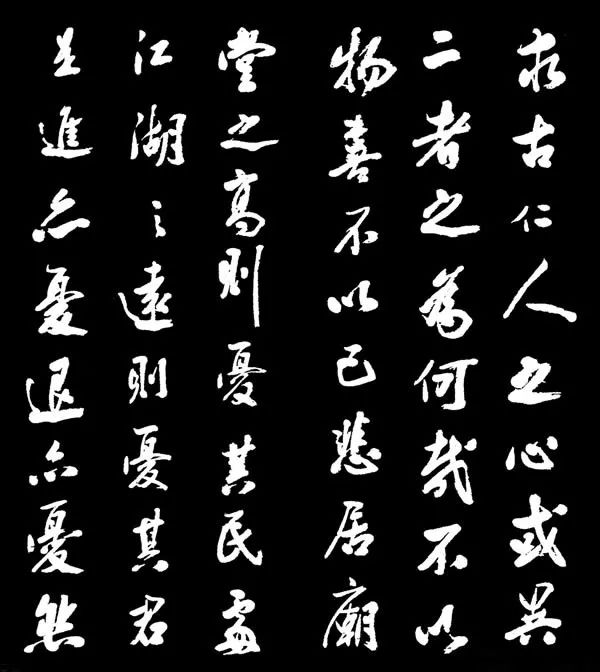 求古仁人之心或異
二者之為何哉不以
物喜不以己悲居廟
堂之高則憂其民處
江湖之遠則憂其君
是進亦憂退亦憂然